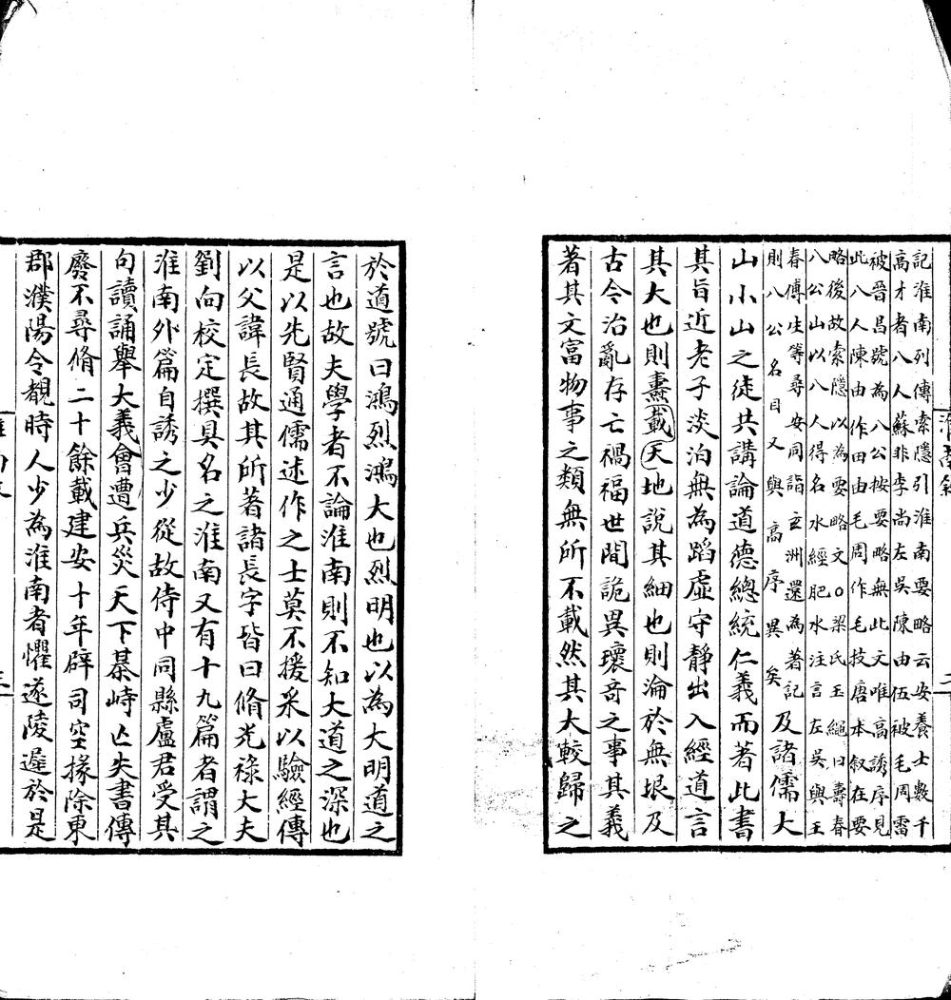 記淮南列傳索隱引淮南要略云安養士數千
高才者八人蘇非李尚左吳陳由伍被毛周雷
被晉昌號為八公按要略無此文唯高誘序見
此八人陳由作田由毛周作毛技唐本叙在要
略後故索隱以為要略文○梁氏玉繩曰壽春
八公山以八人得名水經肥水注言左吳與王
春傅生等尋安同詣玄洲還為著記
則八公名目又與高序異矣
及諸儒大
山小山之徒共講論道德總統仁義而著此書
其旨近老子淡泊無為蹈虛守靜出入經道言
其大也則燾載天地說其細也則淪於無垠及
古今治亂存亡禍福世閒詭異瓌奇之事其義
著其文富物事之類無所不載然其大較歸之
於道號曰鴻烈鴻大也烈明也以為大明道之
言也故夫學者不論淮南則不知大道之深也
是以先賢通儒述作之士莫不援采以驗經傳
以父諱長故其所著諸長字皆曰脩光祿大夫
劉向校定撰具名之淮南又有十九篇者謂之
淮南外篇自誘之少從故侍中同縣盧君受其
句讀誦舉大義會遭兵災天下棊峙亡失書傳
廢不尋脩二十餘載建安十年辟司空掾除東
郡濮陽令覩時人少為淮南者懼遂陵遲於是